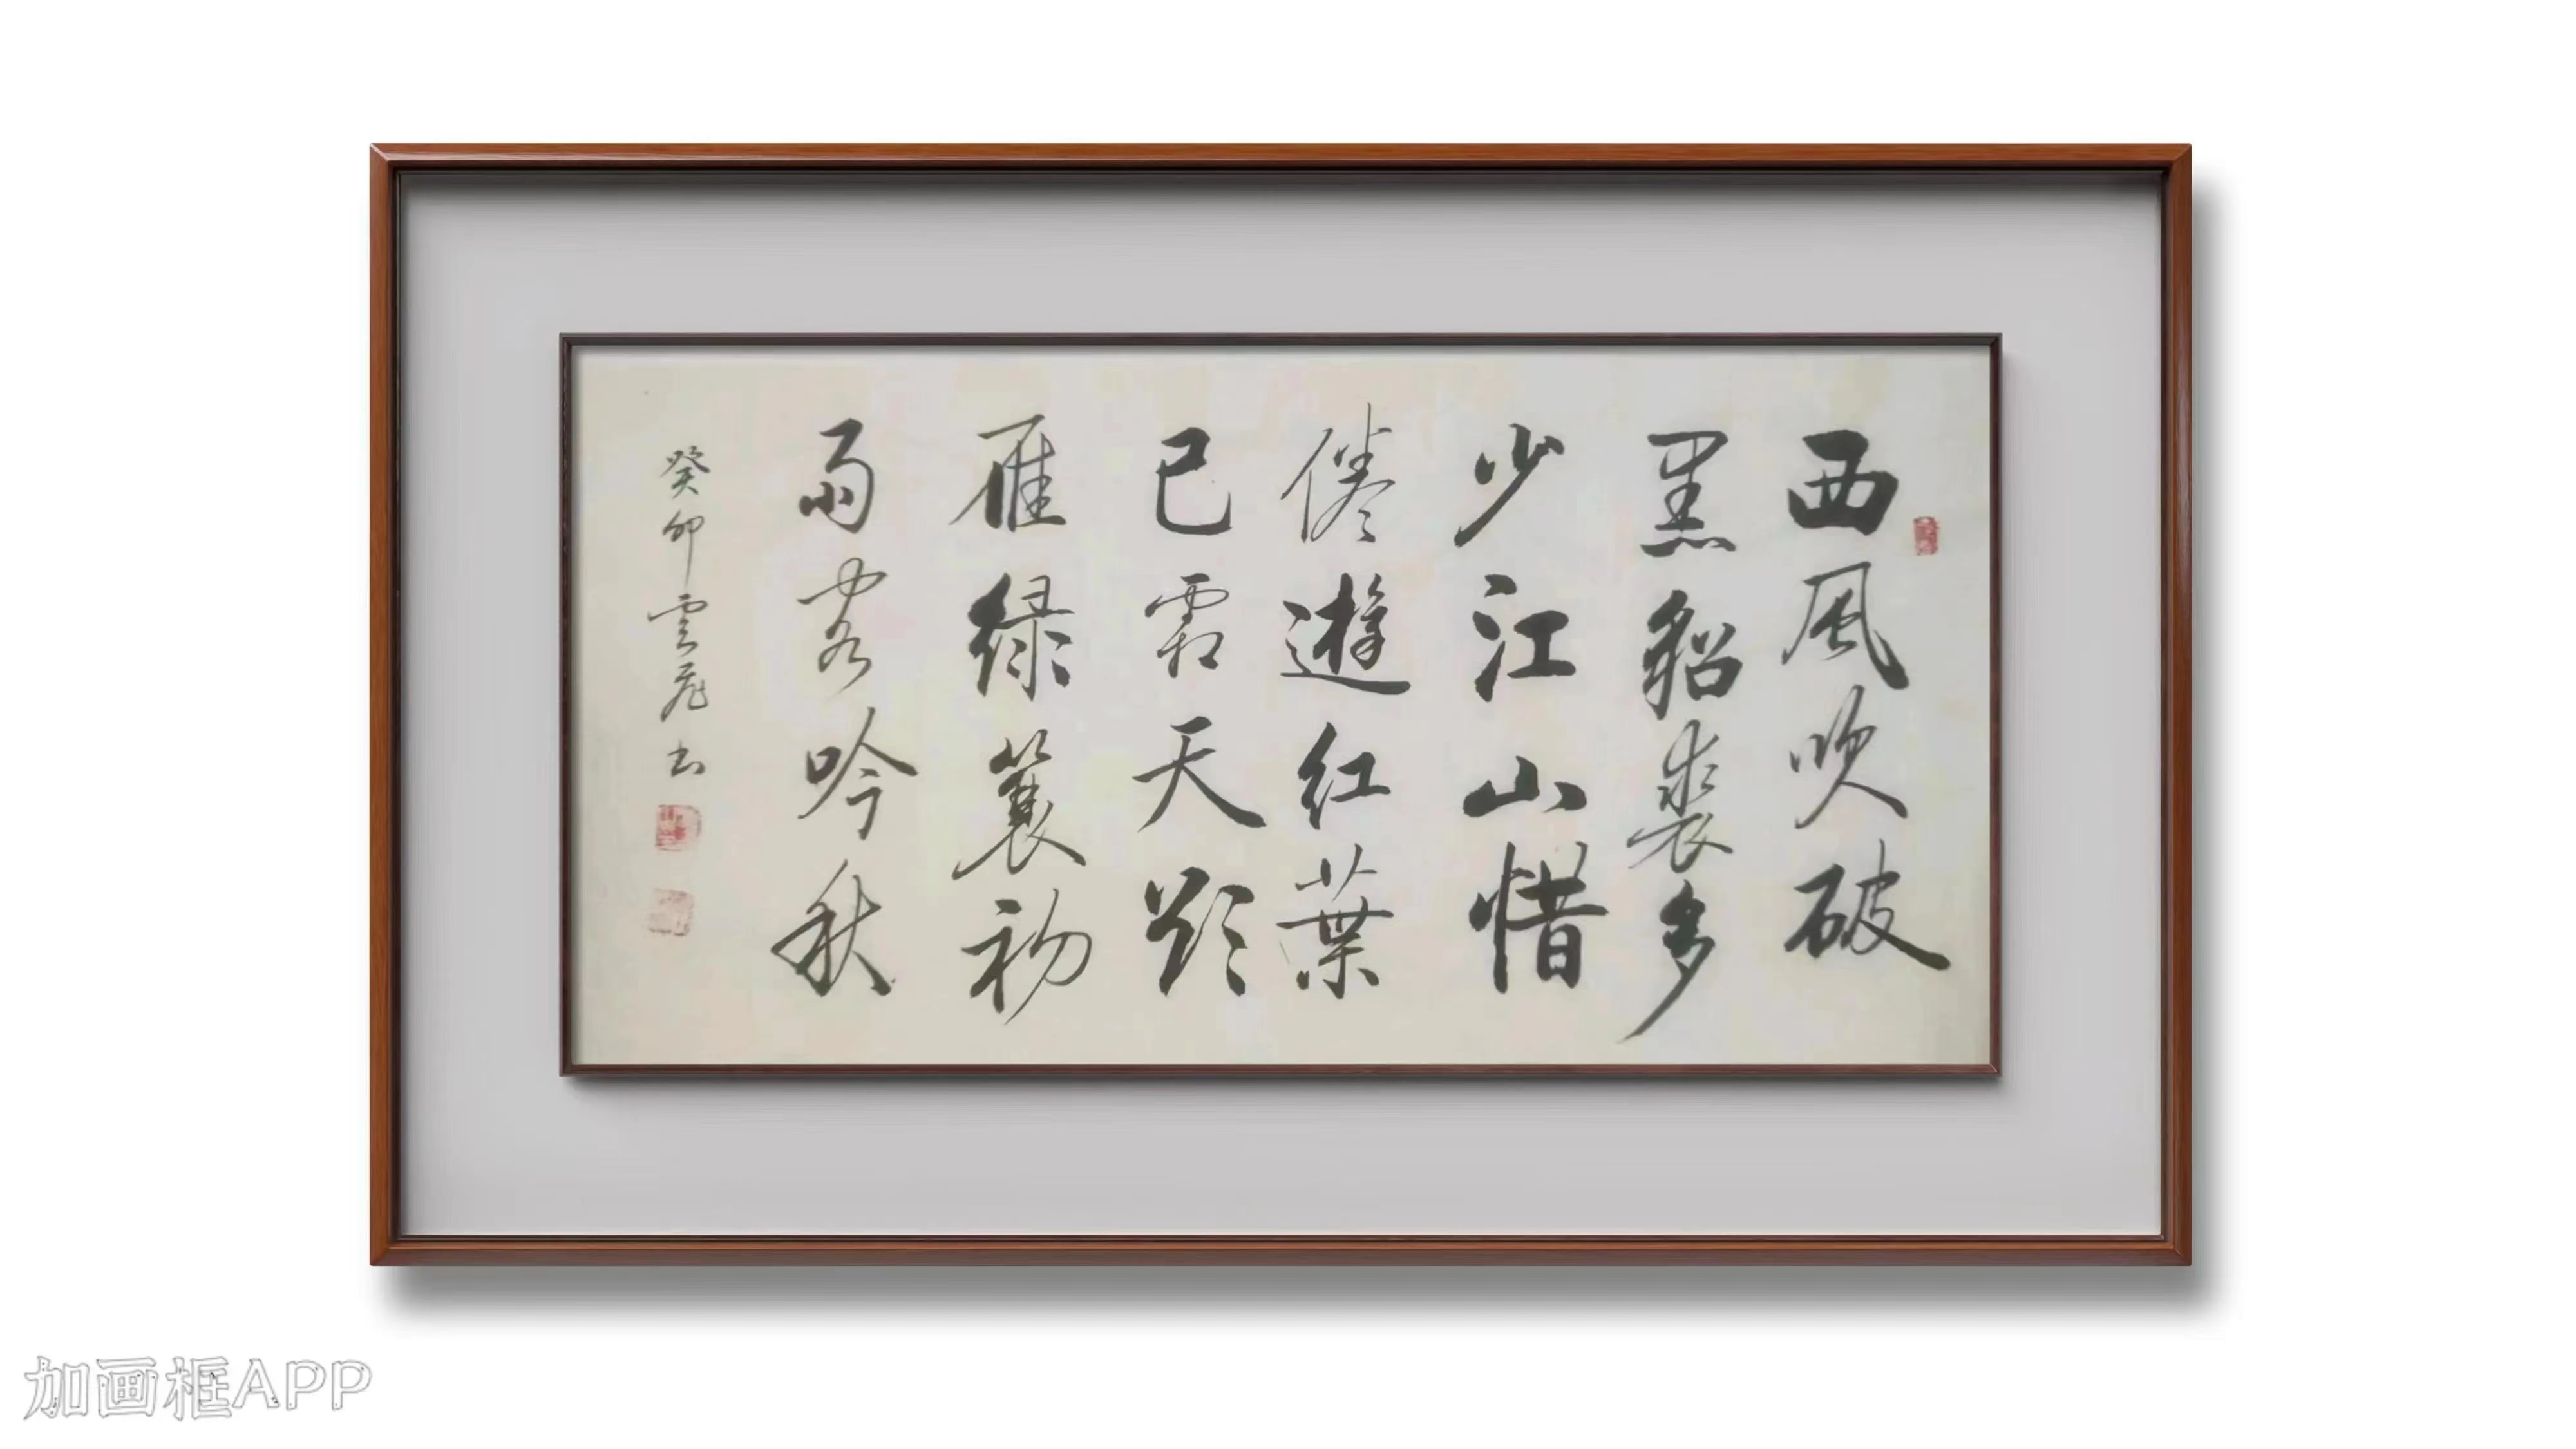 西風吹破
黑貂裘多
少江山惜
倦遊紅葉
已霜天欲
雁緑蓑初
雨客吟秋
癸卯雲飛书
加画框APP